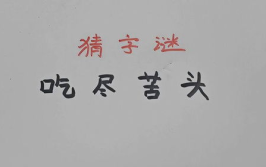 猜字谜
吃尽苦头